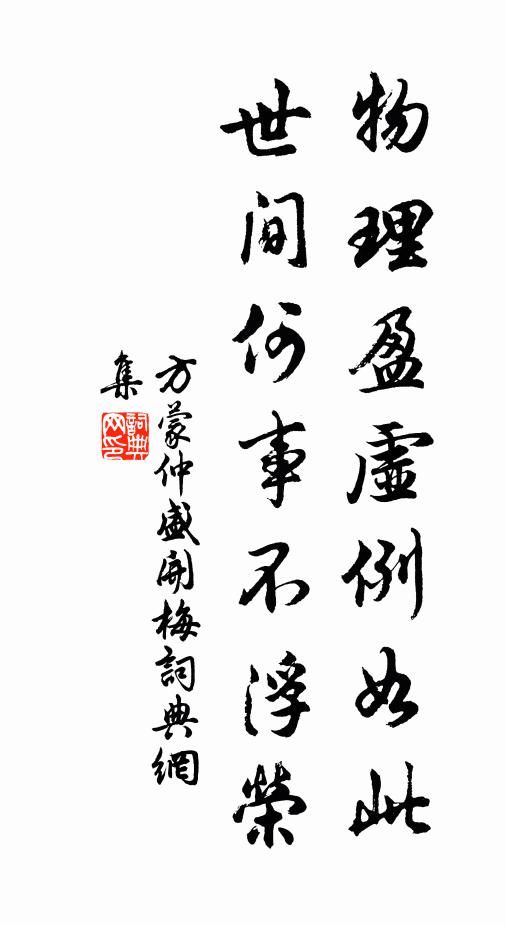 物理盈虛例如此
世間何事不浮榮
方蒙仲盛開梅詞典網
集
詞典
网印